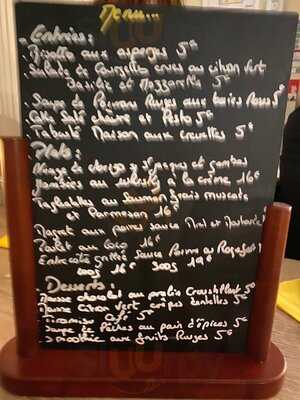 Menu...
Entrées:
Risotto aux asperges 5€
Salade de Courgettes crues au citron vert
Basilic et Mozzarella 5€
Soupe de Poivrons Rouges aux baies Roses 5€
Cake Salé chèvre et Pesto 5€
Taboulé Maison aux crevettes 5€
Plats:
de chorizo et gambas
au whisky à la crème 16€
Tagliatelles au Saumon frais muscade
et Parmesan 16€
Magret aux poires sauce Miel et Moutarde
Poulet au Coco 16€
Entrecôte grillée Sauce Poivre ou Roquefort
200g 16€ 300g 19€
Desserts:
Mousse chocolat au pralin Croustillant 5€
Mousse Citron Vert crêpes dentelles 5€
Tiramisu Café 5€
Soupe de Pêches au pain d'épices 5€
Smoothie aux fruits Rouges 5€